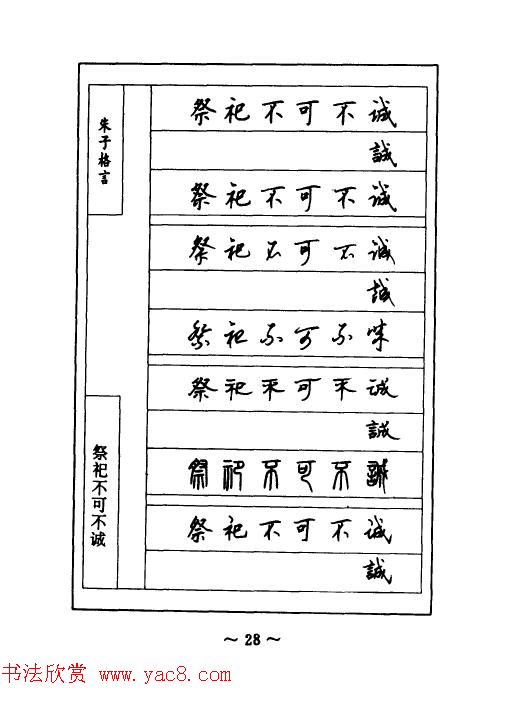 朱子格言
祭祀不可不诚
祭祀不可不诚
誠
祭祀不可不诚
祭祀不可不诚
誠
祭祀不可不诚
祭祀不可不诚
誠
祭祀不可不誠
祭祀不可不诚
誠
～28～
书法欣赏 www.yac8.com